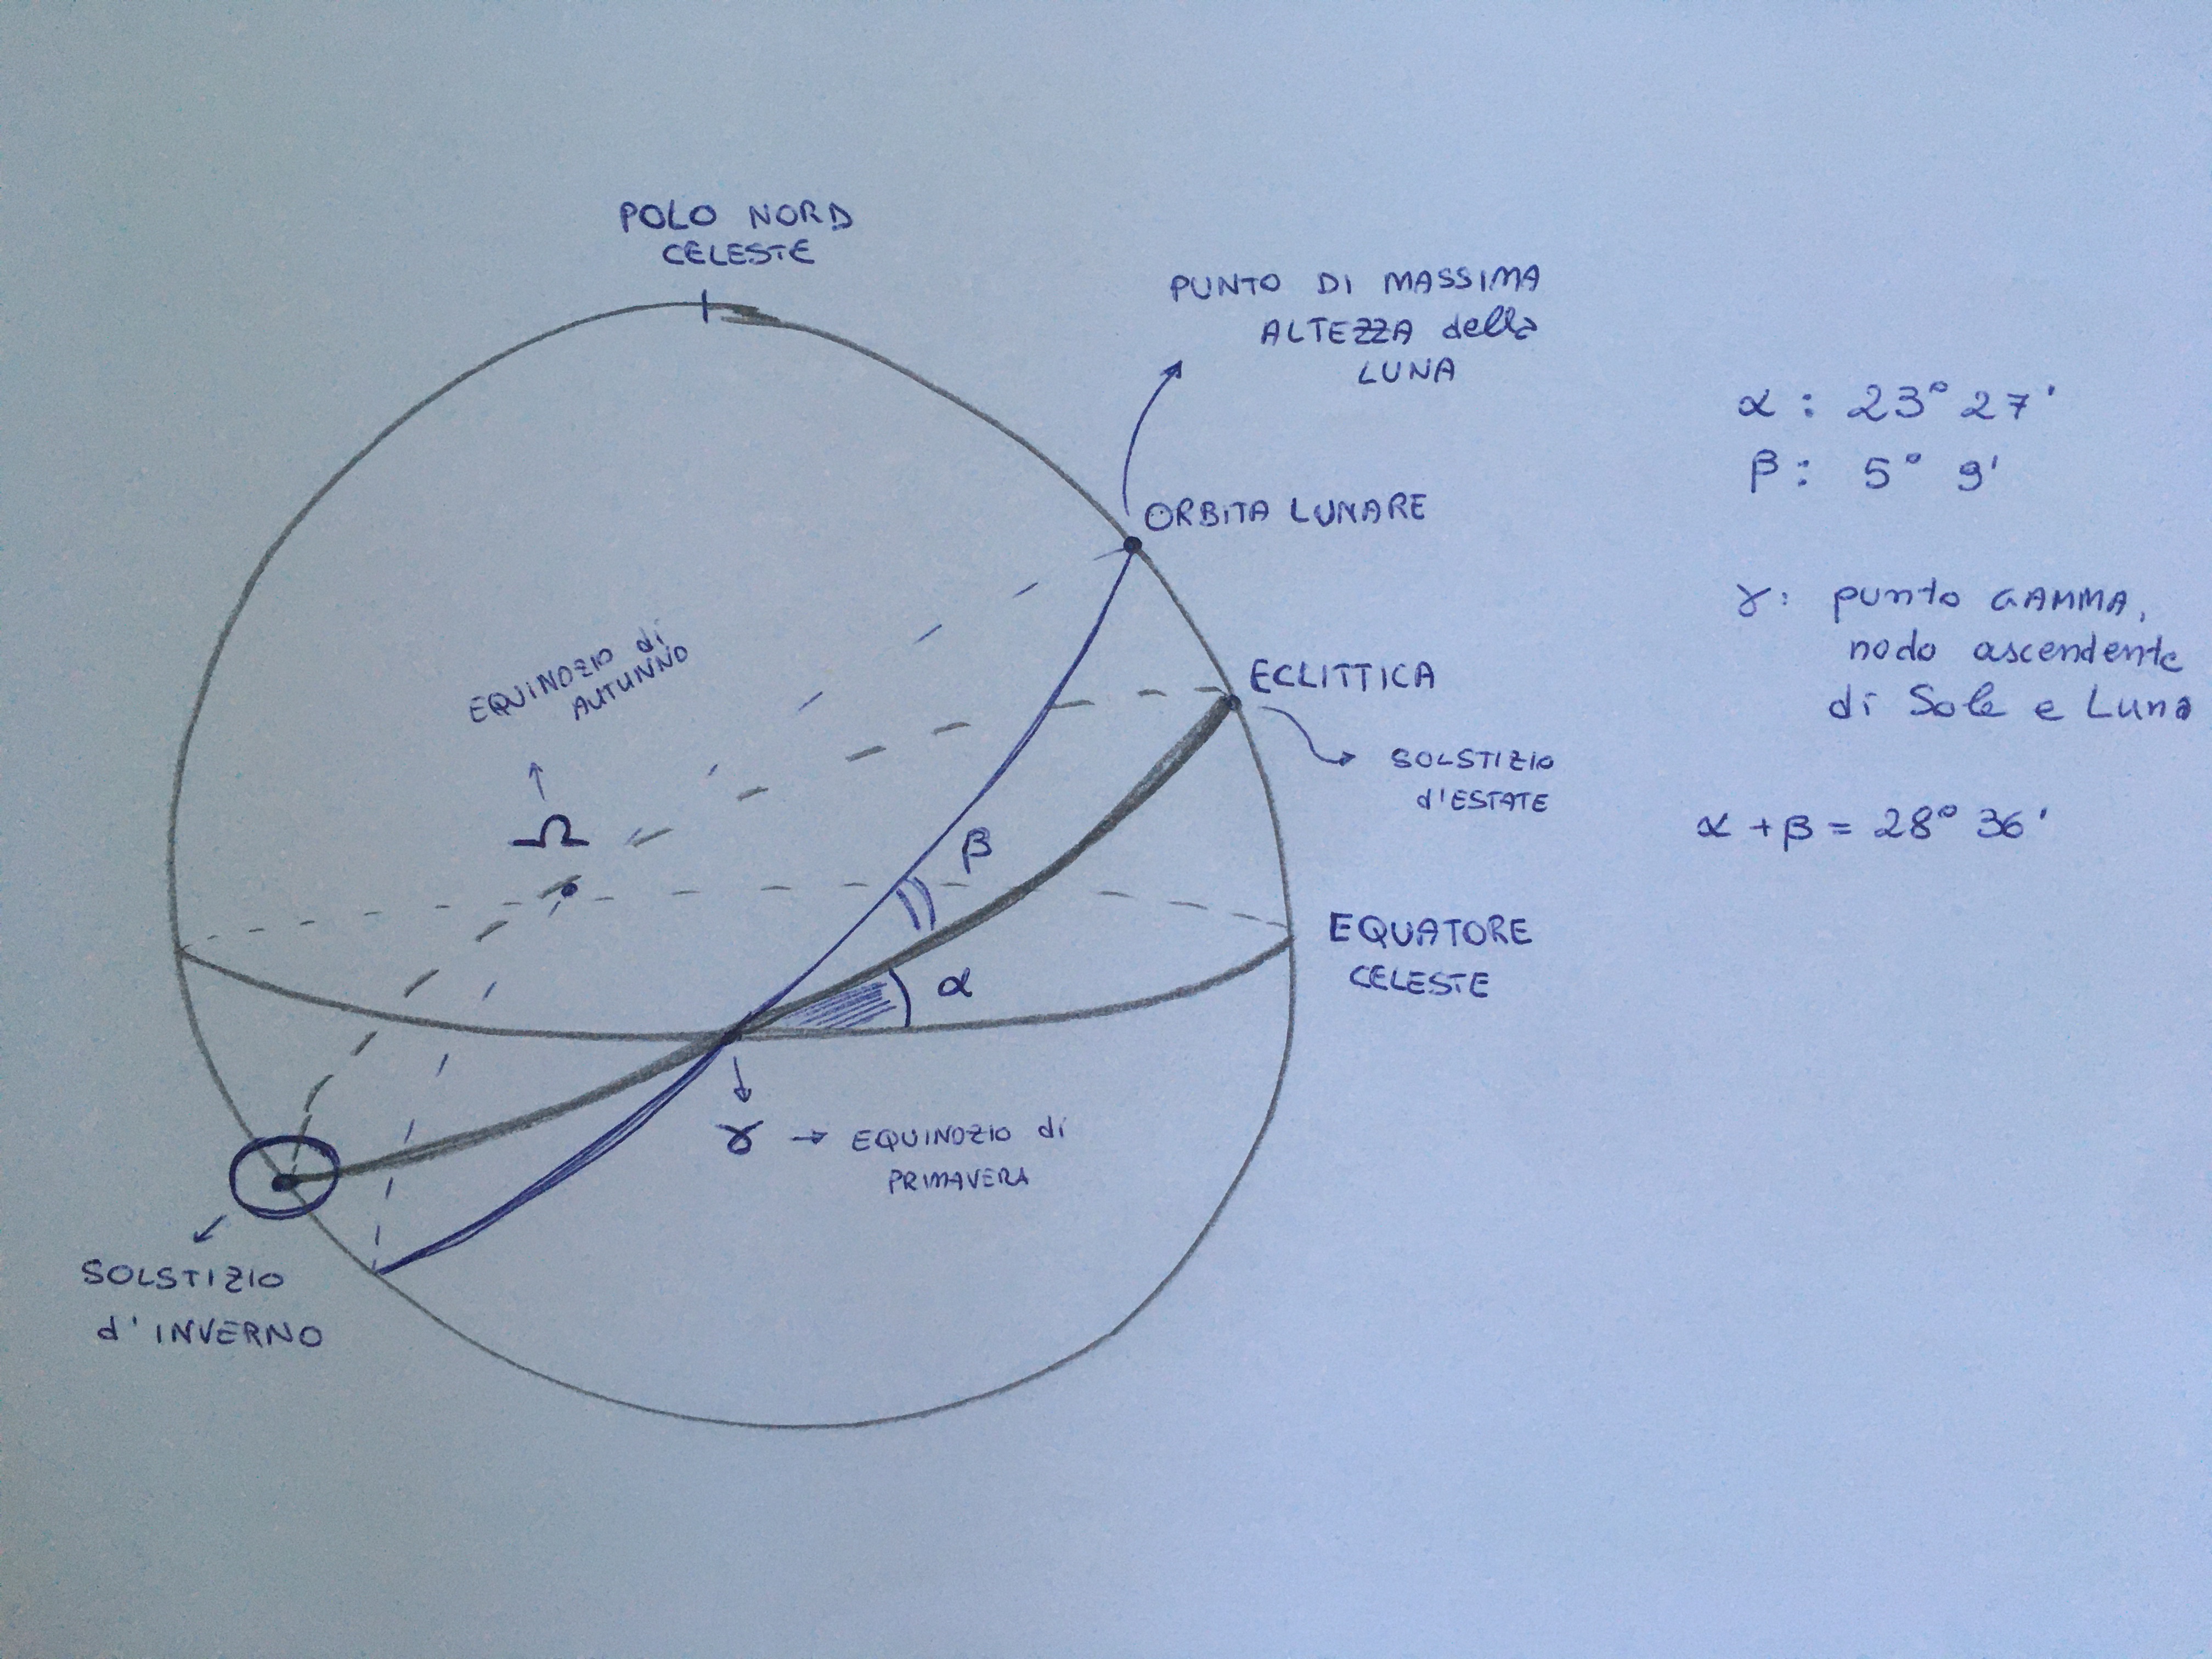 POLO NORD
CELESTE
PUNTO DI MASSIMA
ALTEZZA della
LUNA
ORBITA LUNARE
α : 23° 27'
β : 5° 9'
γ: punto GAMMA,
nodo ascendente
di Sole e Luna
α + β = 28° 36'
EQUINOZIO di
AUTUNNO
ECLITTICA
SOLSTIZIO
d'ESTATE
Ω
β
EQUATORE
CELESTE
α
γ → EQUINOZIO di
PRIMAVERA
SOLSTIZIO
d'INVERNO